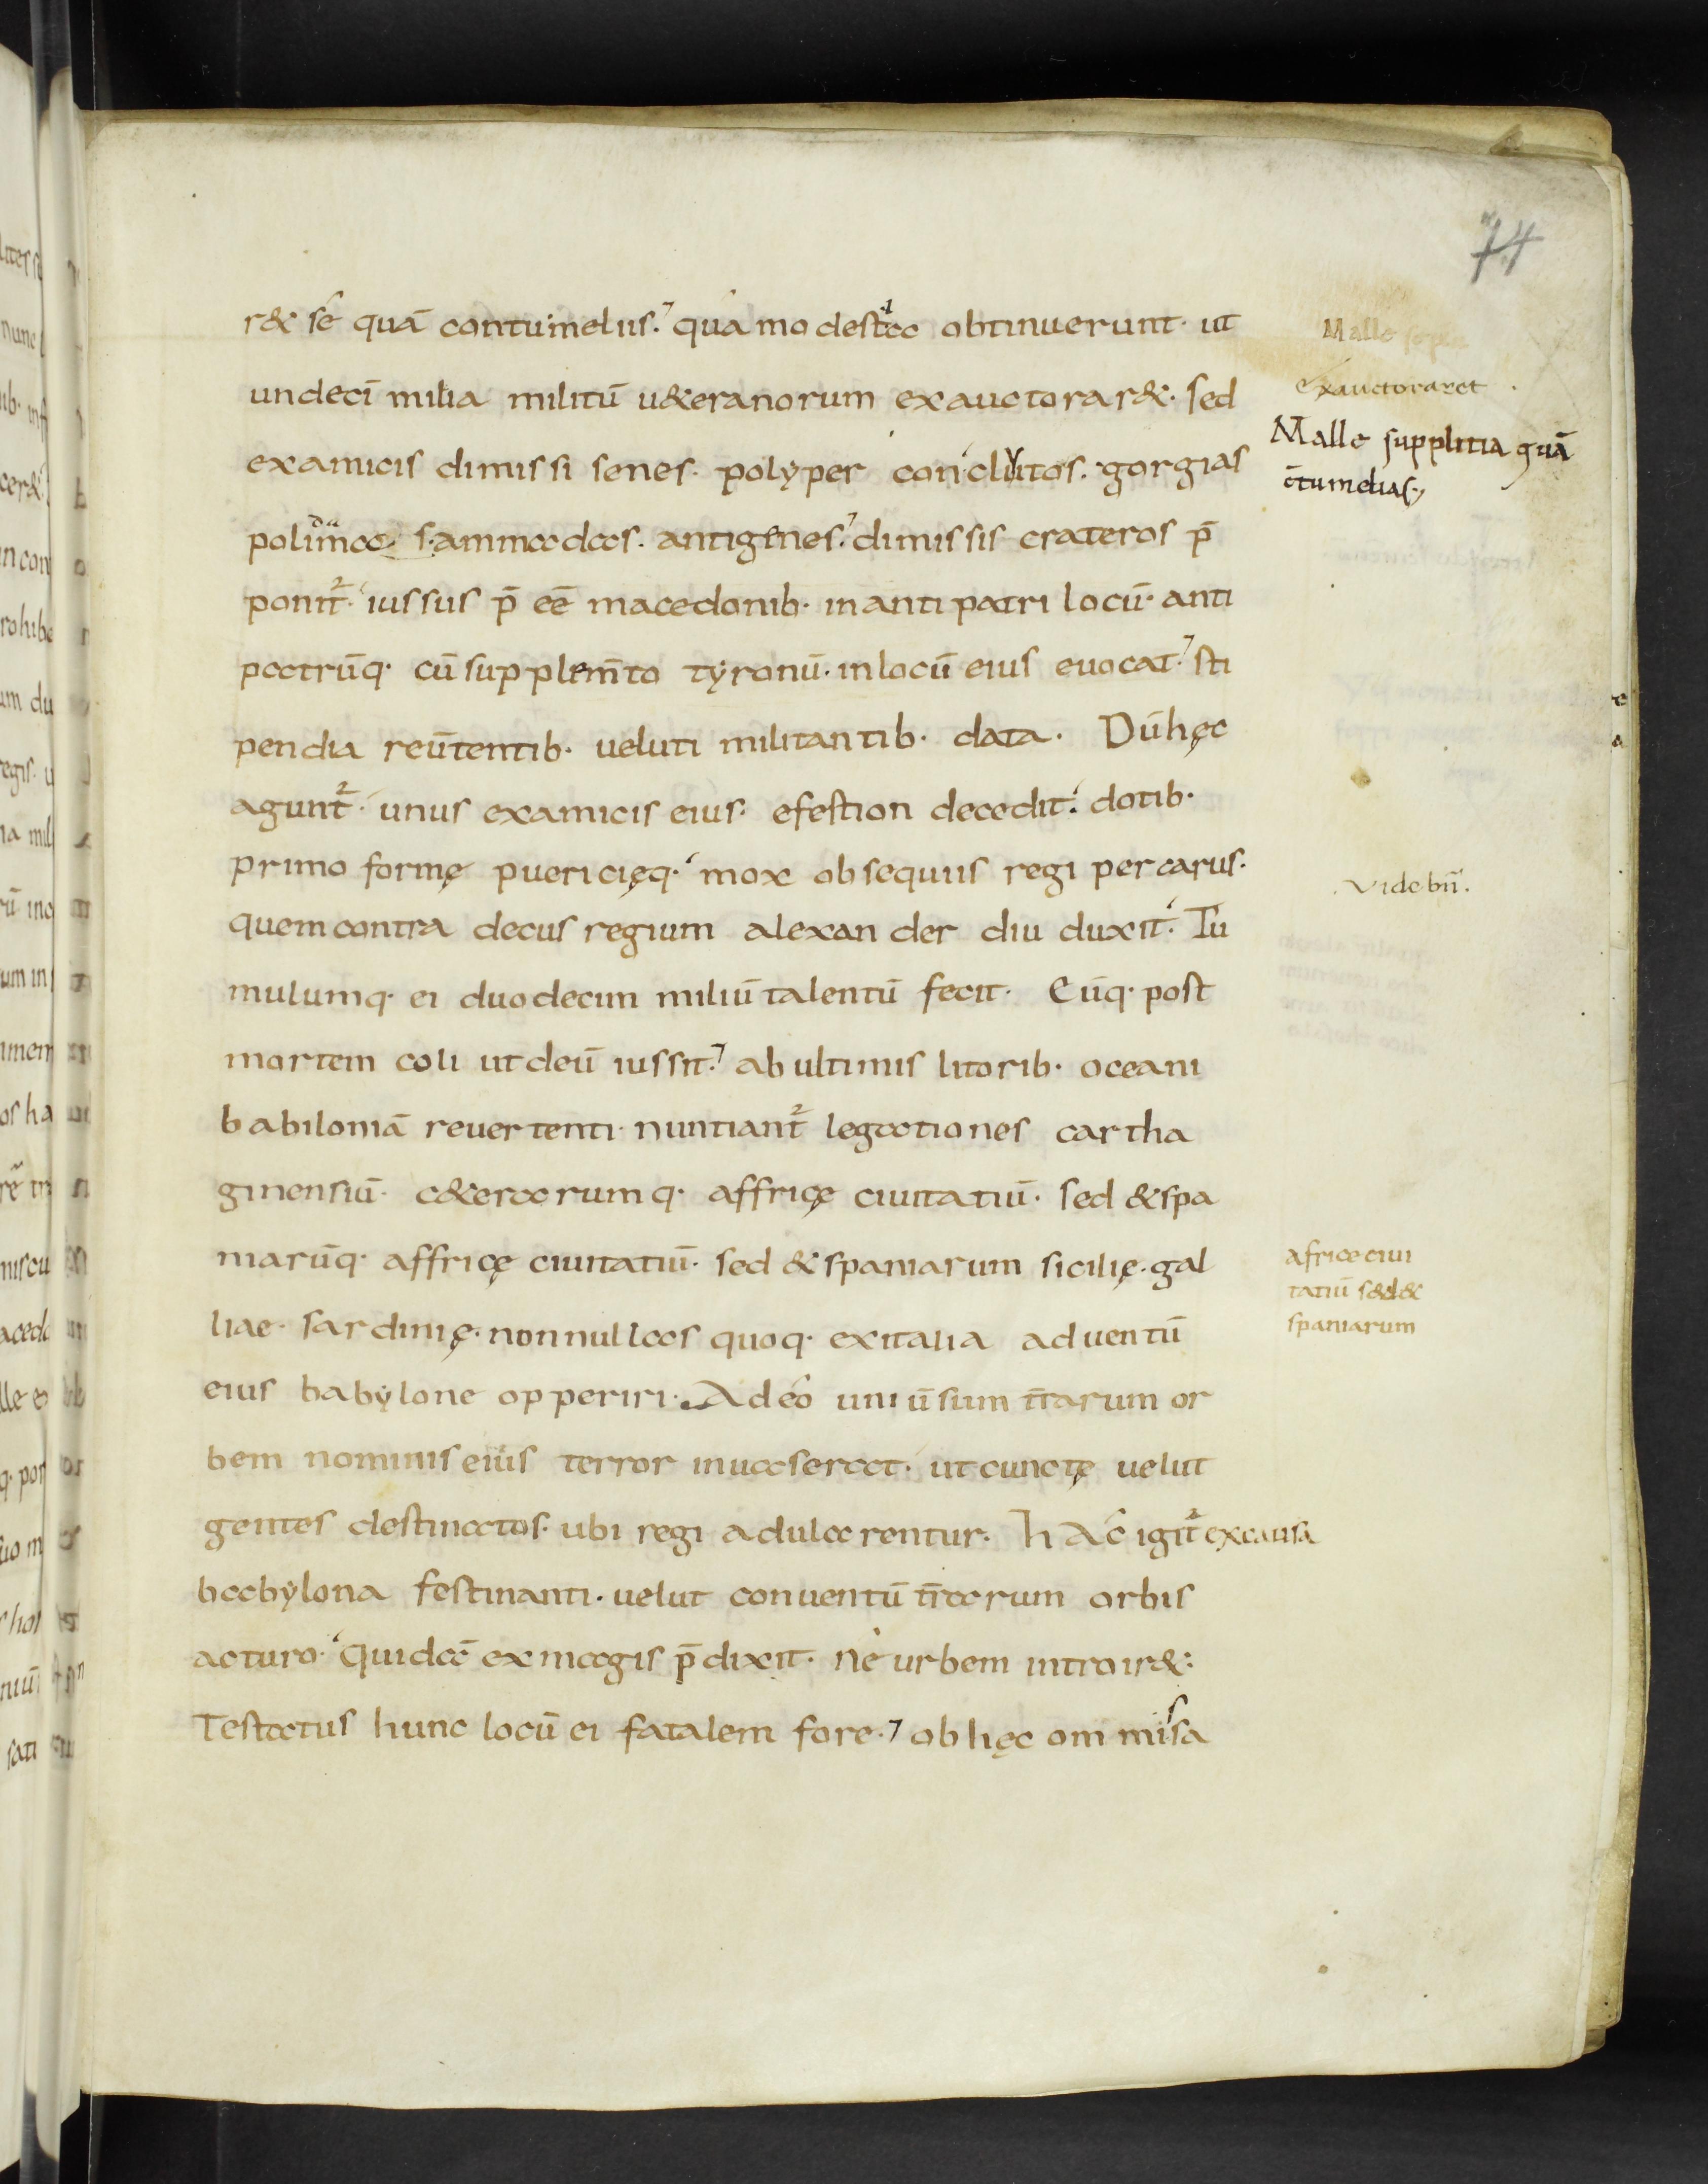 74
r& sē quā contumeliis. quā modestia obtinuerunt· ut
undecī milia militū u&eranorum exauctorar&· sed
examicis dimissi senes· polyper conclytos· gorgias
polimas· sammadas· antigenes· dimissis crateros p̄
ponit᷑· iussus p̄ eē macedonib· inantipatri locū· anti
patrūq· cū supplem̄to tyronū· inlocū eius euocat· sti
pendia reūtentib· ueluti militantib· data· Dū hęc
agunt᷑· unus examicis eius· efestion decedit· dotib·
primo formę puericięq· mox obsequiis regi percarus·
quem contra decus regium alexander diu duxit· Tu
mulumq· ei duodecim miliū talentū fecit· Eūq· post
mortem coli ut deū iussit· ab ultimis litorib· oceani
babiloniā reuertenti nuntiant᷑ legationes cartha
ginensiū· c&erarumq· affricę ciuitatiū· sed &spa
niarūq· affricę ciuitatiū· sed &spaniarum sicilię· gal
liae· sardinię· nonnullas quoq· exitalia aduentū
eius babylone opperiri· Adeo uniūsum t̄rarum or
bem nominis eius terror inuaserat· ut cunctę uelut
gentes destinatos· ubi regi adularentur· hAc igit᷑ excausa
babylona festinanti· uelut conuentū t̄rarum orbis
acturo· Quidā ex magis p̄dixit· ne urbem introir&·
Testatus hunc locū ei fatalem fore· ⁊ ob hęc ommisa
Malle
exauctoraret
Malle supplitia quā
c̄tumelias·
Vide bn̄·
africe ciui
tatiū sed&
spaniarum